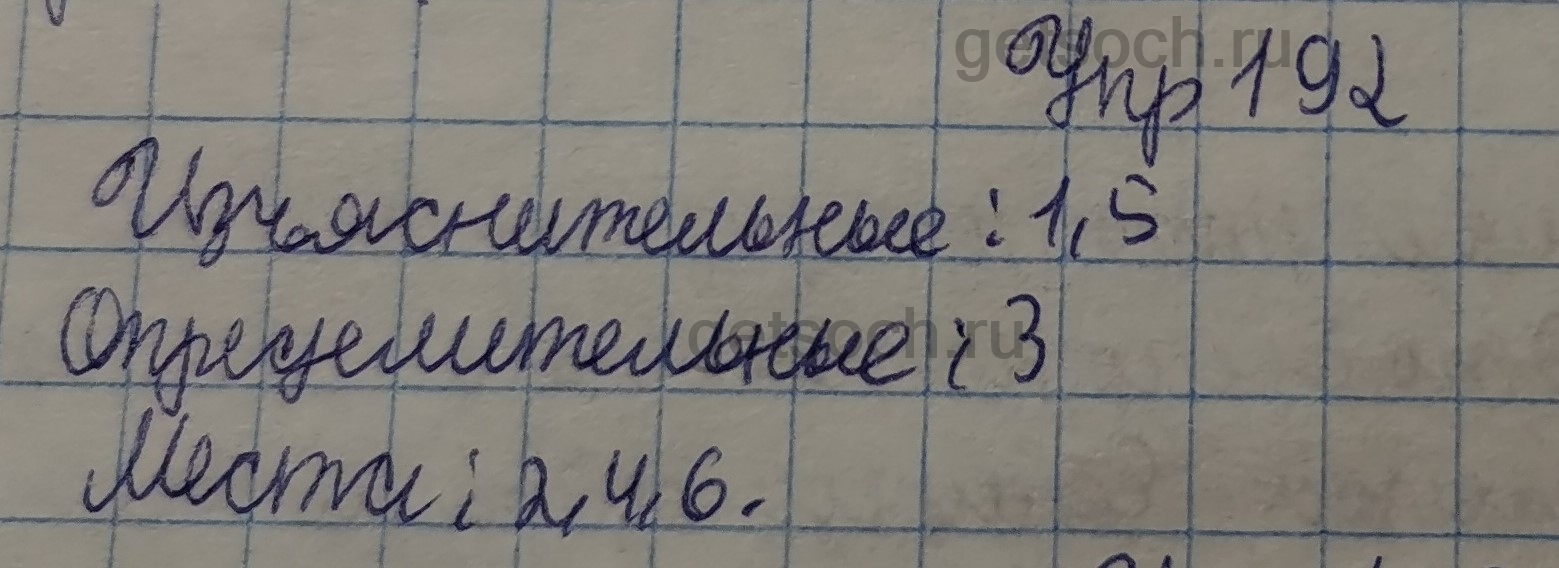 getsoch.ru
Упр 192
Изъяснительные: 1,5
Определительные: 3
getsoch.ru
Места: 2,4,6.